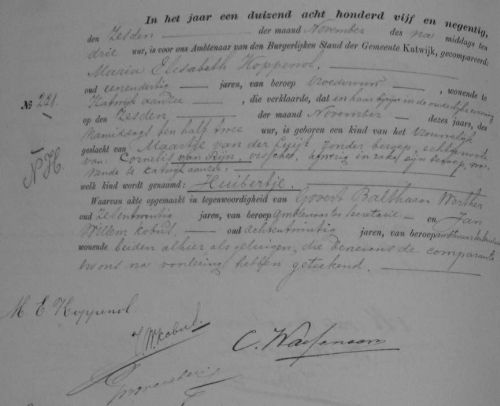 In het jaar een duizend acht honderd vijf en negentig,
den Zesden der maand November des na middags ten
drie uur, is voor ons Ambtenaar van den Burgerlijken Stand der Gemeente Katwijk, gecompareerd:
Maria Elisabeth Hoppenol,
oud jaren, van beroep Vroedvrouw, wonende te
No 221. Katwijk aan Zee, die verklaarde, dat ten haren bijzijn in de
op den Zesden der maand November dezes jaars, des
namiddags ten half twee uur, is geboren een kind van het Vrouwelijk
N. H. geslacht van Maartje van der zonder beroep, echtgenoote
van Cornelis van Rijn, visscher, afwezig in zake zijn beroep,
wonende te Katwijk aan Zee;
welk kind wordt genaamd: Huibertje.
Waarvan akte opgemaakt in tegenwoordigheid van Govert Balthasar
oud Zevenentwintig jaren, van beroep Ambtenaar ter Secretarie en Jan
Willem oud achtentwintig jaren, van beroep
wonende beiden alhier als getuigen, die benevens de comparante
en ons na voorlezing hebben geteekend.
M. E. Hoppenol